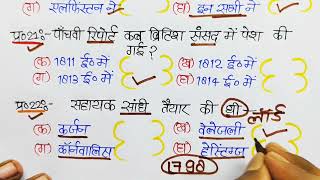 (ग) एलफिंस्टन ने (घ) इन सभी ने
प्र०21ः- पाँचवी रिपोर्ट कब ब्रिटिश संसद में पेश की
गई?
(क)- 1811 ई० में (ख) 1812 ई० में
(ग) 1813 ई० में (घ) 1814 ई० में
प्र०22ः- सहायक संधि तैयार की थी - लार्ड
(क)- कर्जन (ख) वेलेजली
(ग) कॉर्नवालिस (घ) हेस्टिंग्ज
1798